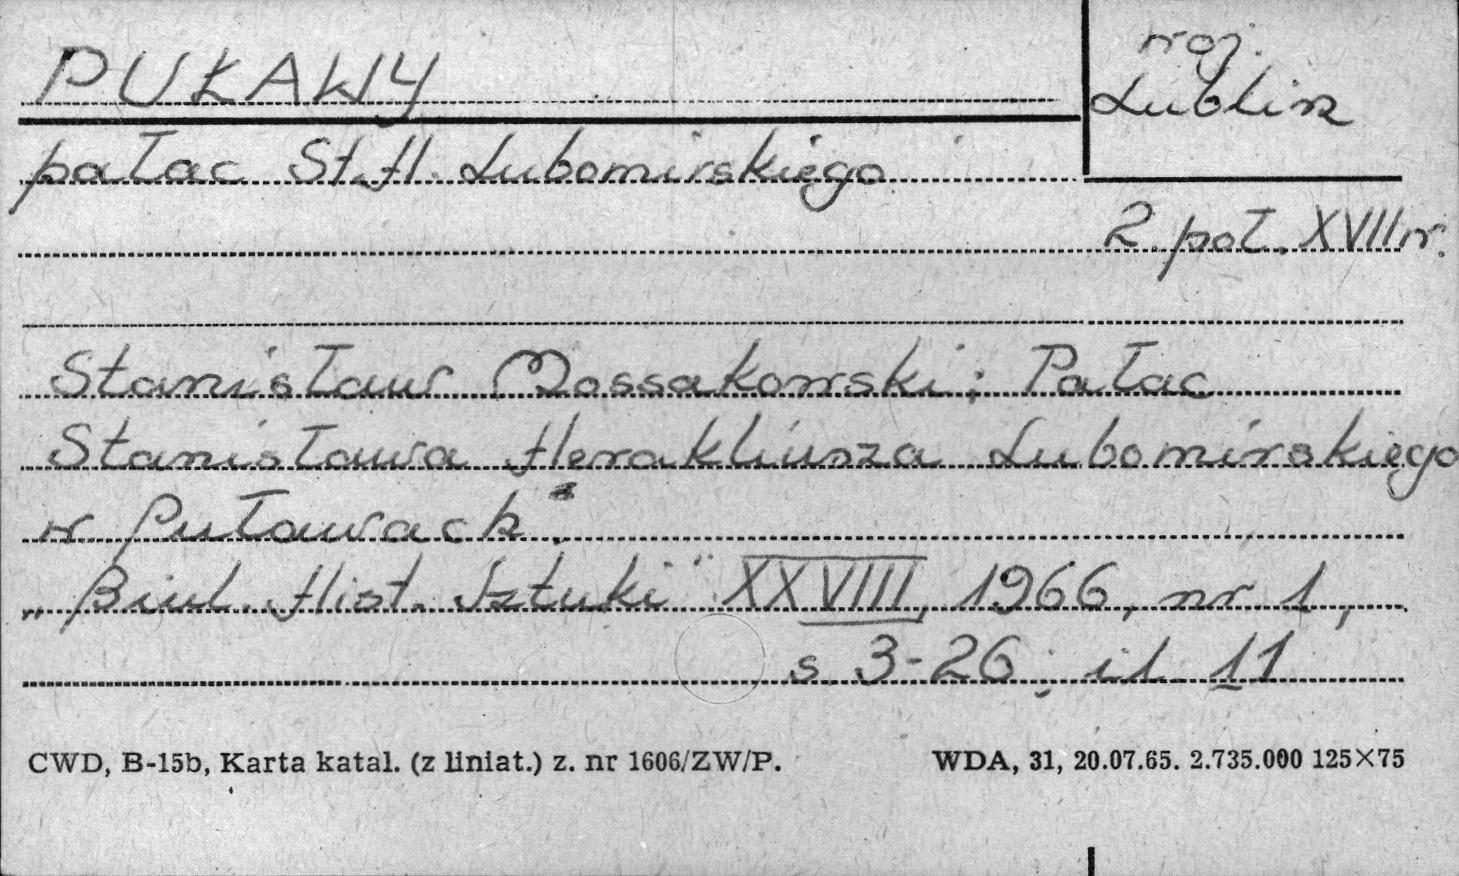 PUŁAWY
woj.
Lublin
pałac St. H. Lubomirskiego
2 poł. XVII w.
Stanisław Mossakowski: Pałac
Stanisława Herakliusza Lubomirskiego
w Puławach.
„Biul. Hist. Sztuki" XXVIII, 1966, nr 1,
s. 3-26; il. 11
CWD, B-15b, Karta katal. (z liniat.) z. nr 1606/ZW/P. WDA, 31, 20.07.65. 2.735.000 125×75